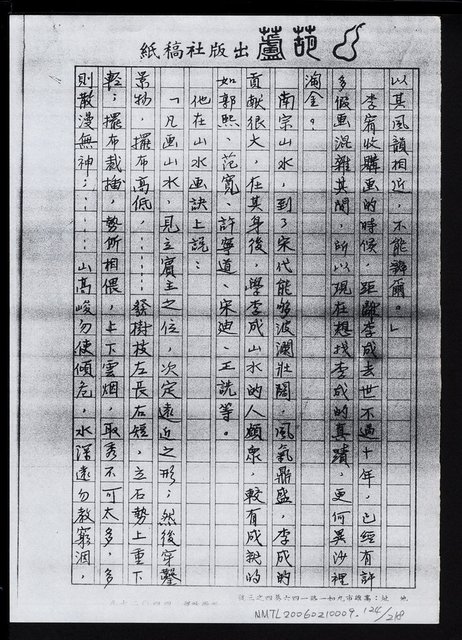 紙稿社版出蘆葫
以其風韻相近，不能辨爾。」
李宥收購画的時候，距離李成去世不過十年，已經有許
多假画混雜其間，所以現在想找李成的真蹟，更何異沙裡
淘金？
南宗山水，到了宋代能够波瀾壯闊，風氣鼎盛，李成的
貢献很大，在其身後，學李成山水的人頗衆，較有成就的
如郭熙、范寬、許寧道、宋迪、王詵等。
他在山水画訣上說：
「凡画山水，見立賓主之位，次定遠近之形；然後穿鑿
景物，擺布高低，……發樹枝左長右短，立石勢上重下
輕；擺布裁插，勢所相偎，上下雲烟，取秀不可太多，多
則散漫無神；……山高峻勿使傾危，水深遠勿教窮涸，
NMTL20060210009. 124/218